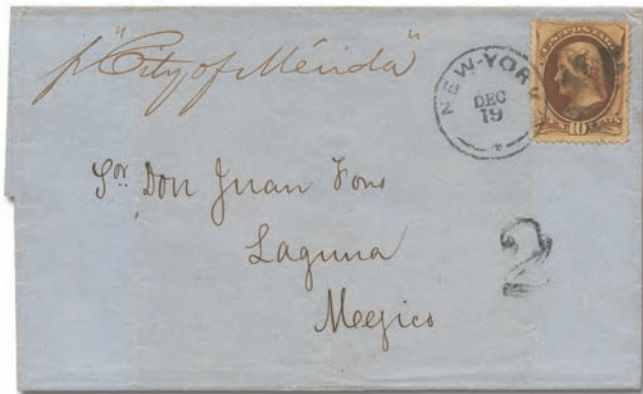 p "City of Mérida"
NEW-YORK
DEC
19
U.S. POSTAGE
10
Sor. Don Juan Fons
Laguna
Megico
2